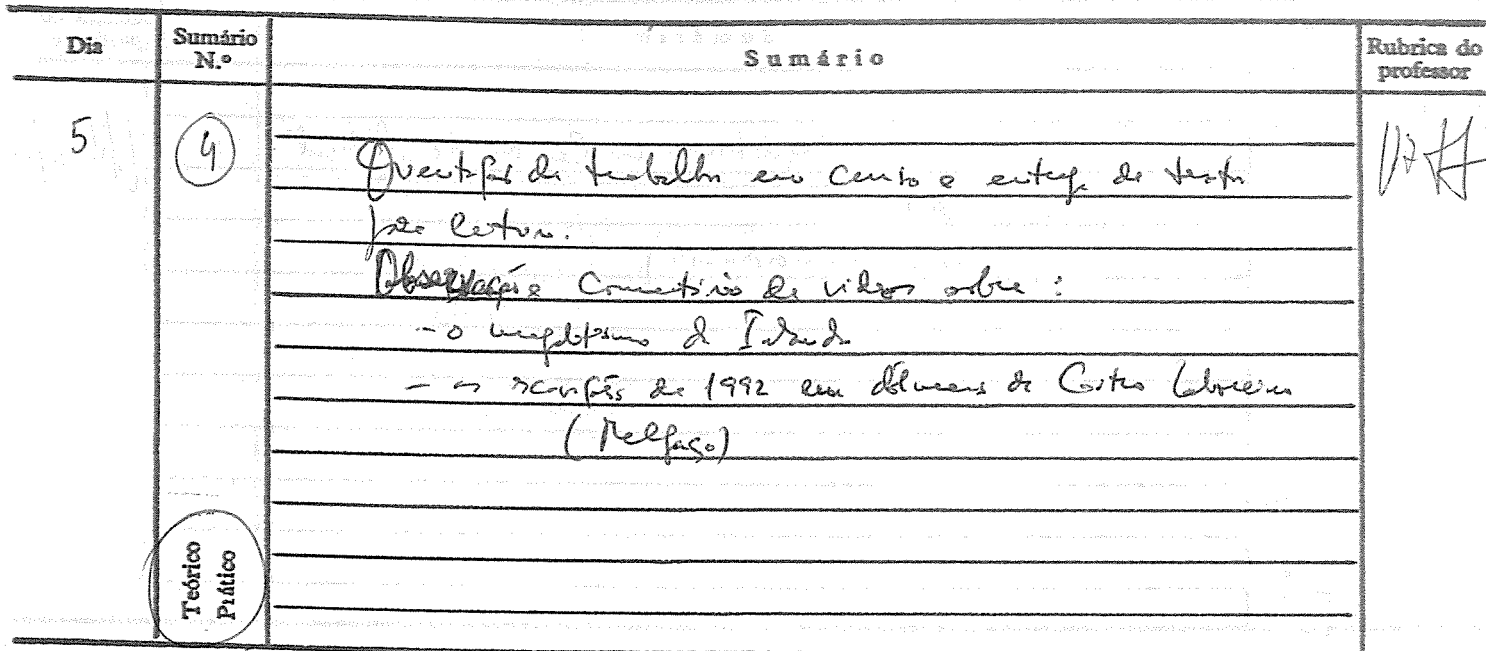 Dia
Sumário N.º
Sumário
Rubrica do professor
5
4
Orientação de trabalhos em curso e entrega de textos
para leitura.
Observação e comentário de vídeos sobre:
- o megalitismo da Irlanda
- as escavações de 1992 em dólmens de Castro Laboreiro
(Melgaço)
Teórico
Prático